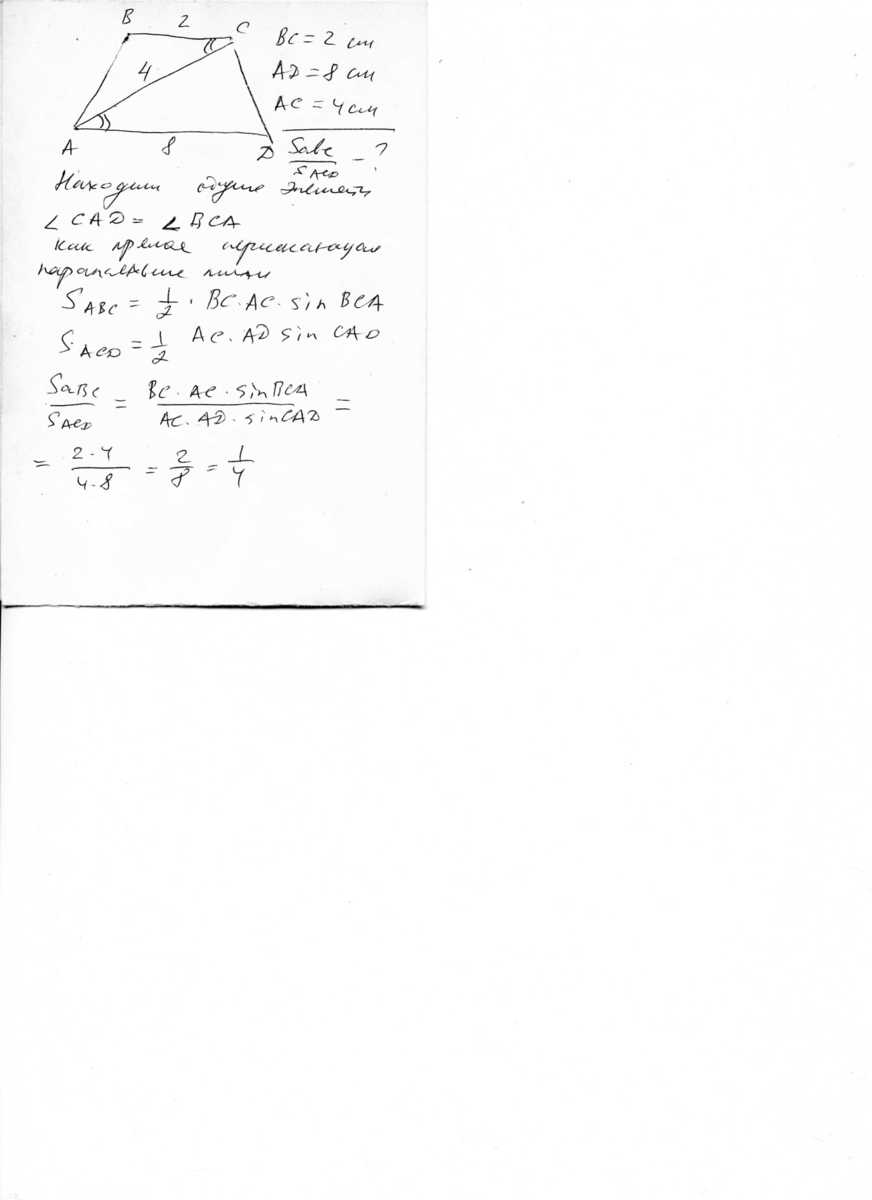 B 2 C
BC = 2 см
4
AD = 8 см
AC = 4 см
A 8 D
Sавс / SACD - ?
Находим общие элементы
∠ CAD = ∠ BCA
как прямая пересекающая
параллельные линии
S ABC = 1/2 · BC · AC · sin BCA
S ACD = 1/2 AC · AD sin CAD
SABC / SACD = BC · AC · sin BCA / AC · AD · sin CAD =
= 2·4 / 4·8 = 2/8 = 1/4